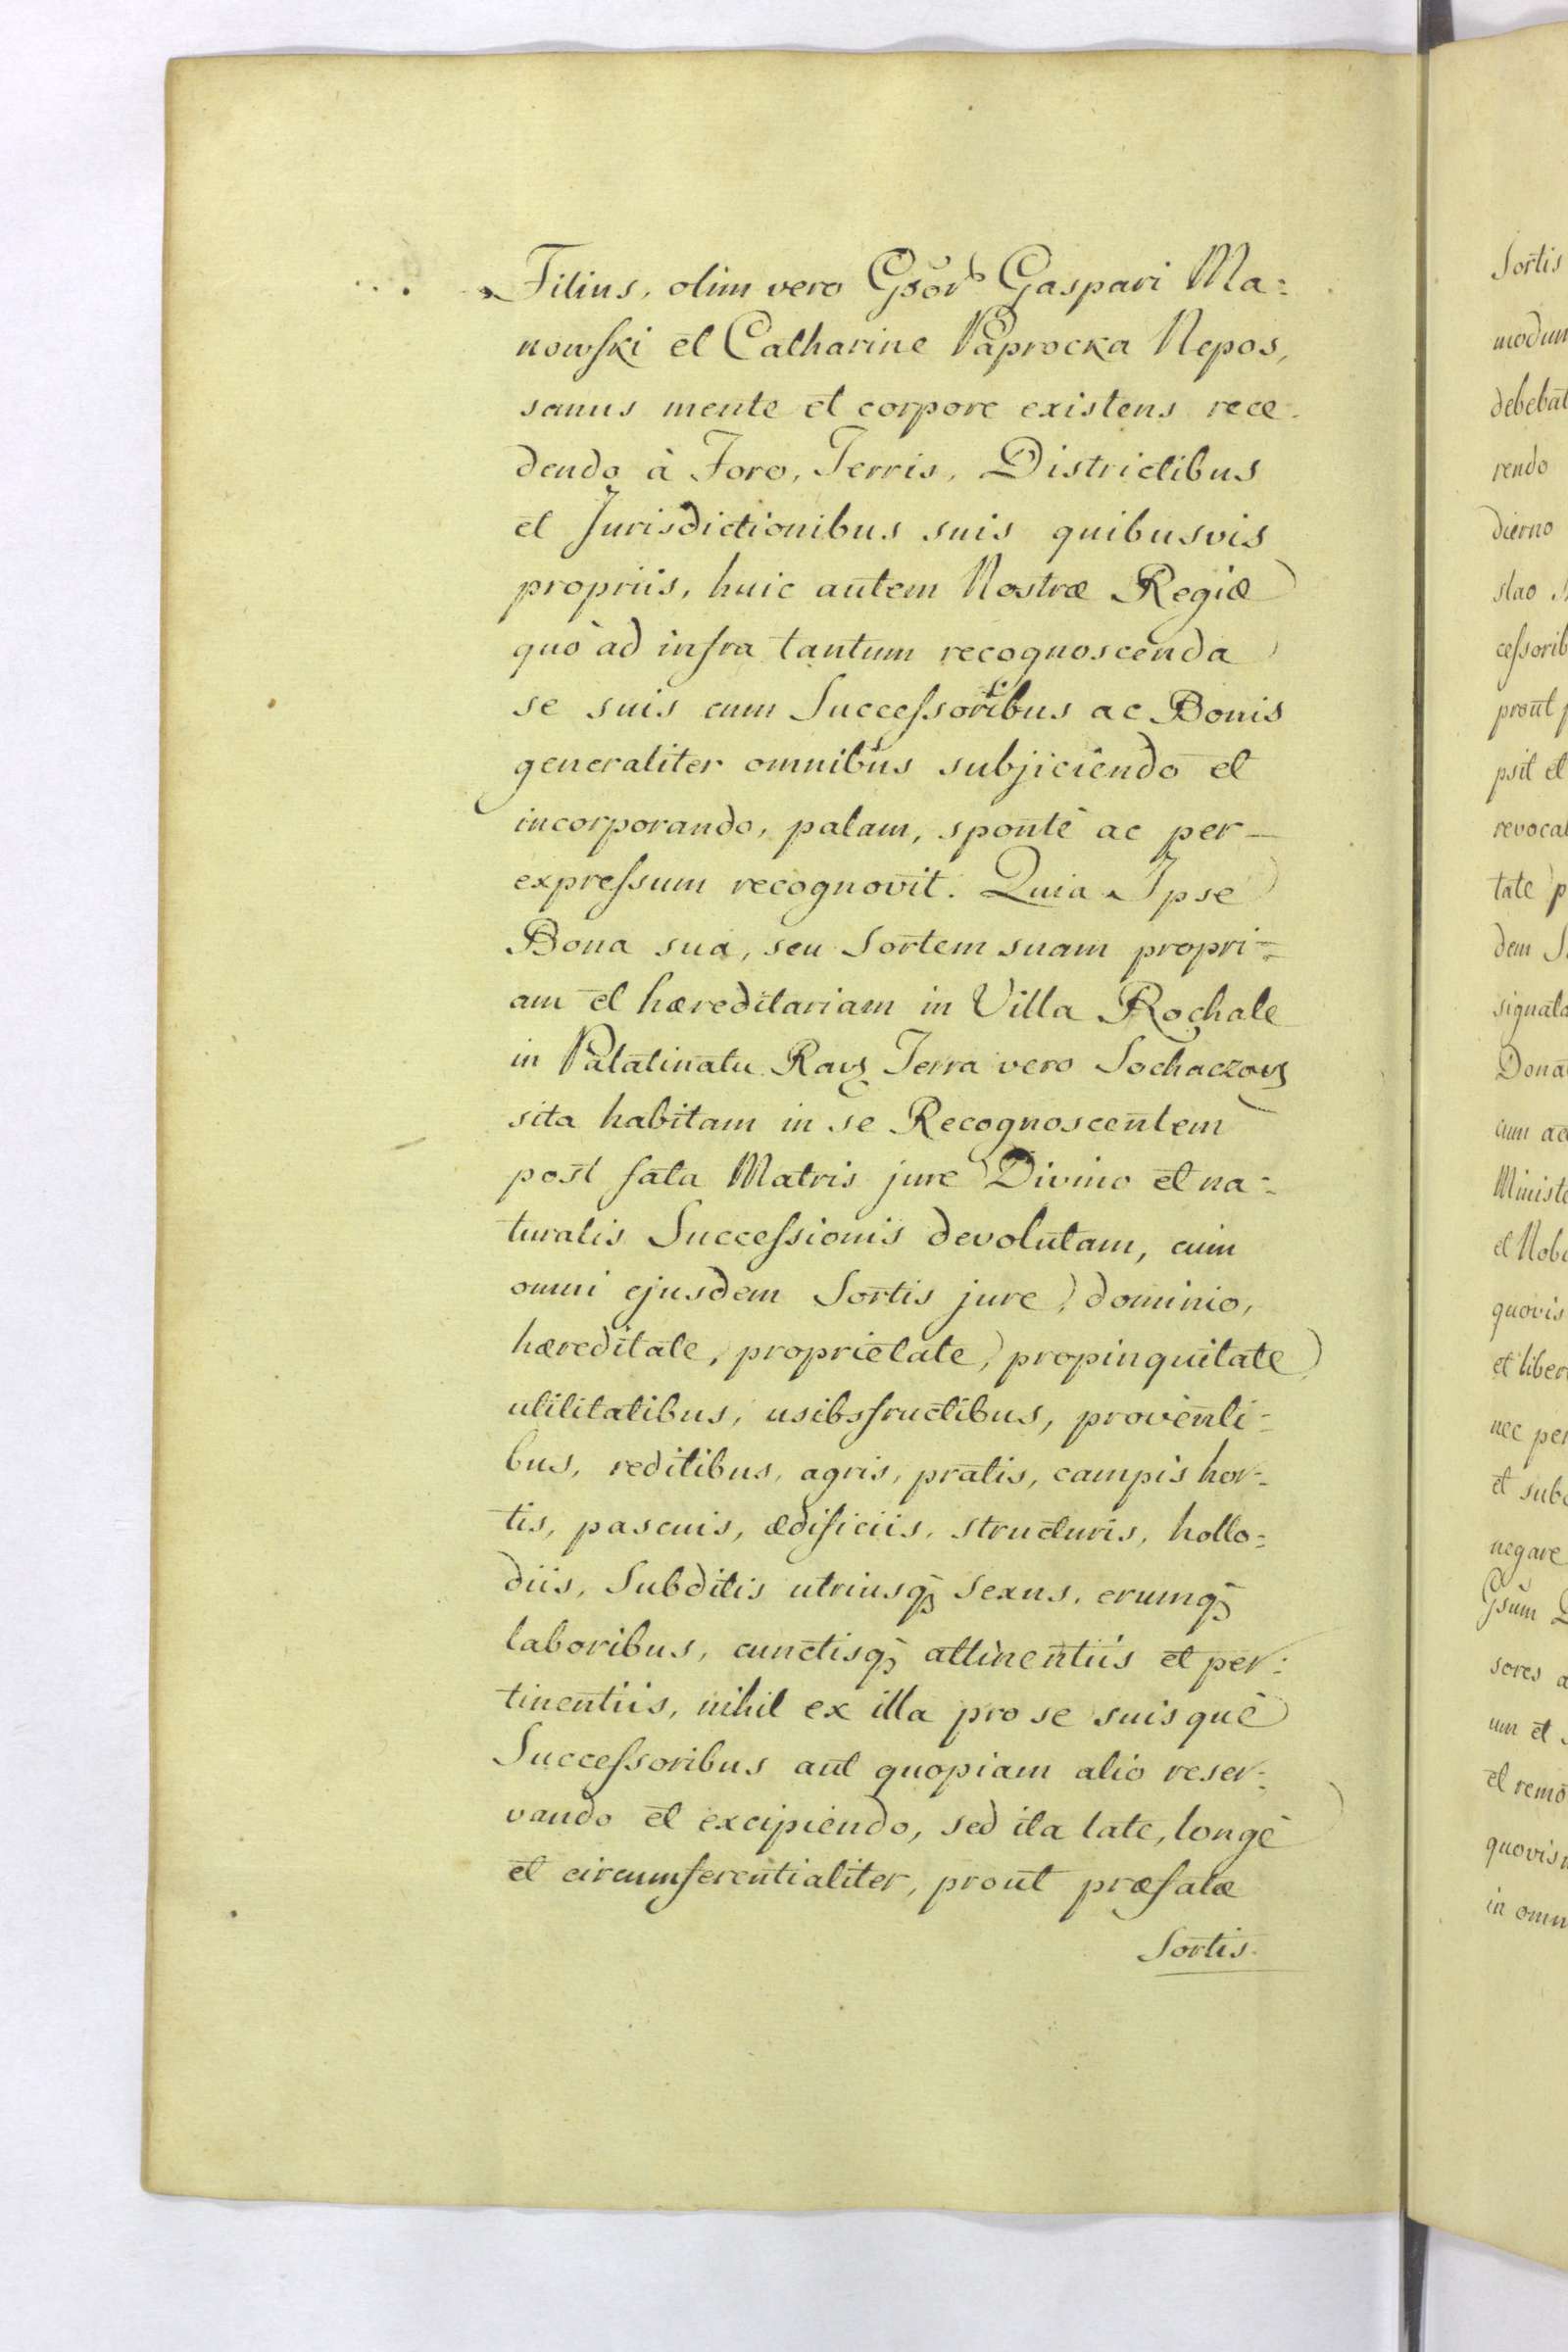 Filius, olim vero Gsor̃ Gaspari Ma:
nowſki et Catharine Paprocka Nepos,
sanus mente et corpore existens rece-
dendo à Foro, Terris, Districtibus
et Jurisdictionibus suis quibusvis
propriis, huic autem Nostræ Regiæ
quò ad infra tantum recognoscenda
se suis cum Succeſsoribus ac Bonis
generaliter omnibus subjiciendo et
incorporando, palam, spontè ac per-
expreſsum recognovit. Quia Ipse
Bona sua, seu Sortem suam propri=
am et hæreditariam in Villa Rochale
in Palatinatu Ravꝫ Terra vero Sochaczovꝫ
sita habitam in se Recognoscentem
post fata Matris jure Divino et na=
turalis Succeſsionis devolutam, cum
omni ejusdem Sortis jure, dominio,
hæreditate, proprietate, propinquitate
utilitatibus, usibsfructibus, proventi=
bus, reditibus, agris, pratis, campis hor=
tis, pascuis, ædificiis, structuris, hollo=
diis, Subditis utriusqꝫ Sexus, erumqꝫ
laboribus, cunctisqꝫ attinentiis et per:
tinentiis, nihil ex illa pro se suisquè
Succeſsoribus aut quopiam alio reser:
vando et excipiendo, sed ita late, longè
et circumferentialiter, prout præfatæ
Sortis
Sortis
modum
debebat
rendo
dierno
slao
ceſsorib
prout
psit et
revocal
tate p
dem S
signata
Dona
cum ac
Ministe
et Nob
quovis
et liber
nec per
et sub
negare
Gsum
sores a
um et
et remo
quovis
in omn